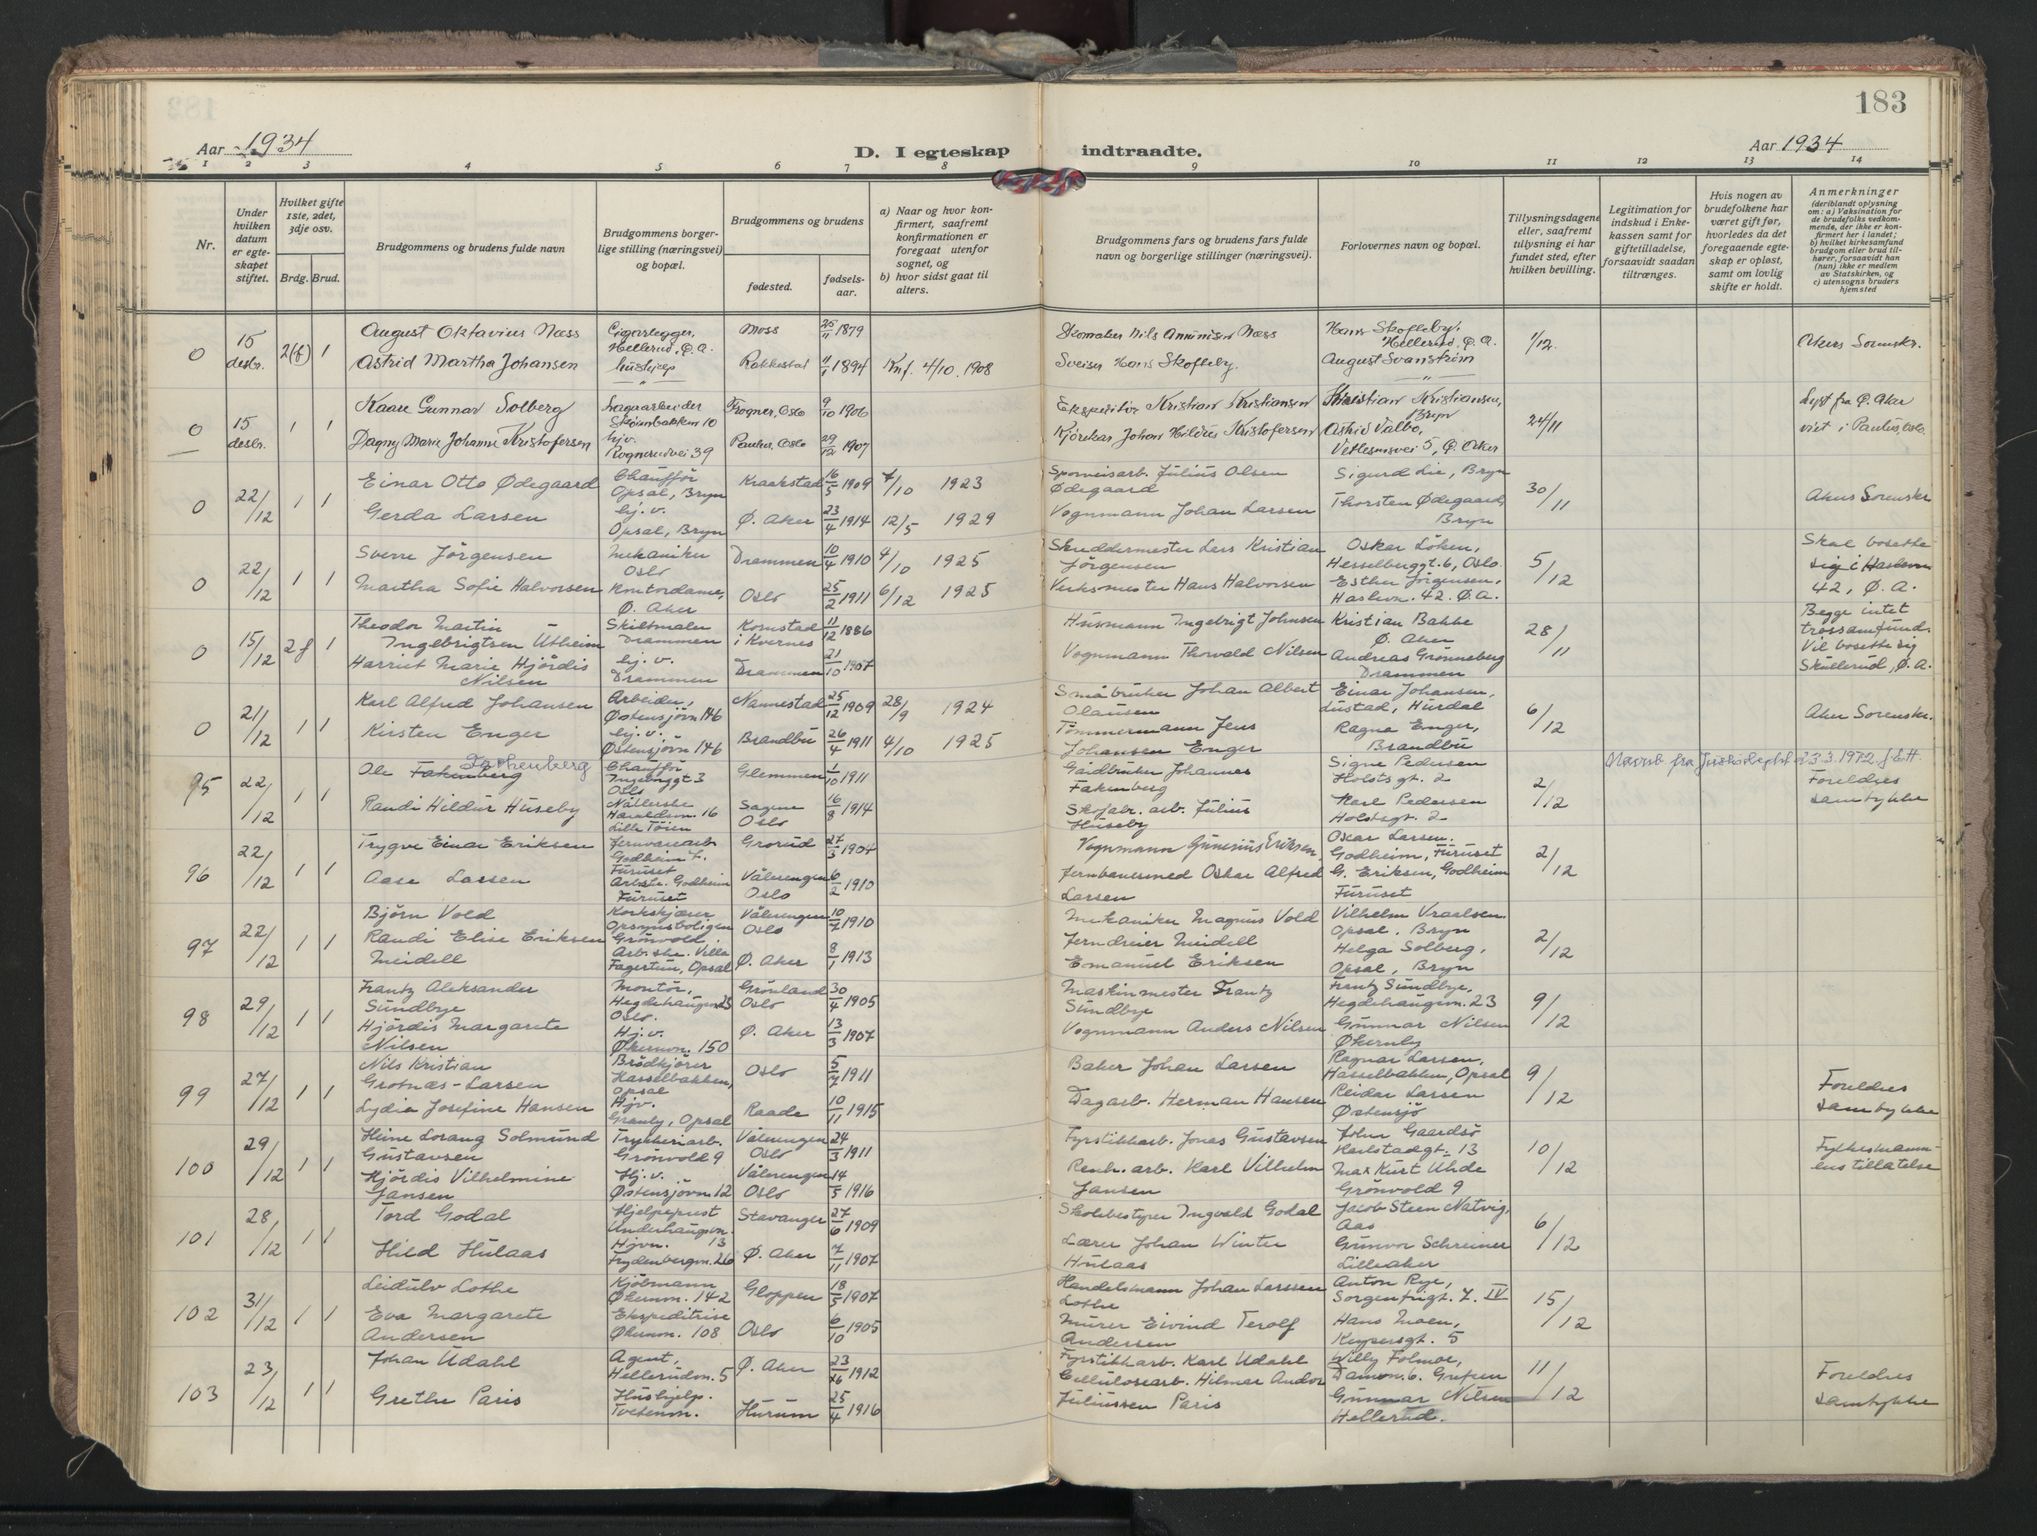 183
Aar 1934
D. I egteskap indtraadte.
Aar 1934
1 2 3 4 5 6 7 8 9 10 11 12 13 14
Nr.
Under hvilken datum er egteskapet stiftet.
Hvilket gifte 1ste, 2det, 3dje osv.
Brdg. Brud.
Brudgommens og brudens fulde navn
Brudgommens borgerlige stilling (næringsvei) og bopæl.
Brudgommens og brudens
fødested.
fødselsaar.
a) Naar og hvor konfirmert, saafremt konfirmationen er foregaaet utenfor sognet, og
b) hvor sidst gaat til alters.
Brudgommens fars og brudens fars fulde navn og borgerlige stillinger (næringsvei).
Forlovernes navn og bopæl.
Tillysningsdagene eller, saafremt tillysning ei har fundet sted, efter hvilken bevilling.
Legitimation for indskud i Enkekassen samt for giftetilladelse, forsaavidt saadan tiltrænges.
Hvis nogen av brudefolkene har været gift før, hvorledes da det foregaaende egteskap er opløst, samt om lovlig skifte er holdt.
Anmerkninger (deriblandt oplysning om: a) Vaksination for de brudefolks vedkommende, der ikke er konfirmert her i landet; b) hvilket kirkesamfund brudgom eller brud tilhører, forsaavidt han (hun) ikke er medlem av Statskirken, og c) utensogns bruders hjemsted
0 15 desbr. 2(f) 1 August Oktavius Næss Cigarlegger, Hellerud, Ø. A. Moss 25/11 1879 Skomaker Nils Amunisen Næss Hans Skofteby, Hellerud, Ø. A. 1/12. Akers Sorenskr.
Astrid Martha Johansen hushjelp " Rakkestad 11/1 1894 Knf. 4/10. 1908 Sveiser Hans Skofteby. August Svanstrøm "
0 15 desbr. 1 1 Kaare Gunnar Solberg Lagerarbeider Skøienbakken 10 Frogner, Oslo 9/10 1906 Ekspeditør Kristian Kristiansen Kristian Kristiansen, Bryn 24/11 Lyst fra Ø. Aker viet i Paulus, Oslo.
Dagny Marie Johanne Kristofersen hjv. Rognerudvei 39 Paulus, Oslo 29/12 1907 Kjørekar Johan Hildus Kristofersen Astrid Valbo, Vetlesensvei 5, Ø. Aker
0 22/12 1 1 Einar Otto Ødegaard Chauffør Opsal, Bryn Kraakstad 16/5 1909 7/10 1923 Sporveisarb. Julius Olsen Ødegaard Sigurd Lie, Bryn 30/11 Akers Sorenskr
Gerda Larsen hj. v. Opsal, Bryn Ø. Aker 23/4 1914 12/5 1929 Vognmann Johan Larsen Thorsten Ødegaard, Bryn
0 22/12 1 1 Sverre Jörgensen Mekaniker Oslo Drammen 10/4 1910 4/10 1925 Skreddermester Lars Kristian Jörgensen Oskar Löken, Hesselberggt. 6, Oslo. 5/12 Skal bosette sig i Haslevn 42, Ø. A.
Martha Sofie Halvorsen Kontordame, Ø. Aker Oslo 25/2 1911 6/12 1925 Verksmester Hans Halvorsen Esther Jörgensen, Haslevn. 42. Ø. A.
0 15/12 2 f 1 Theodor Martin Ingebrigtsen Utheim Skiltmaler Drammen Kornstad i Kvernes 11/12 1886 Husmann Ingebrigt Johnsen Kristian Bakke Ø. Aker 28/11 Begge intet trossamfund. Vil bosette sig Skullerud, Ø. A.
Harriet Marie Hjördis Nilsen hj. v. Drammen Drammen 21/10 1907 Vognmann Thorvald Nilsen Andreas Grönneberg Drammen
0 21/12 1 1 Karl Alfred Johansen Arbeider, Østensjövn 146 Nannestad 25/12 1909 28/9 1924 Småbruker Johan Albert Olausen Einar Johansen, Lustad, Hurdal 6/12 Aker Sorenskr.
Kirsten Enger hj. v. Østensjövn 146 Brandbu 26/4 1911 4/10 1925 Tömmermann Jens Johansen Enger Ragna Enger, Brandbu
95 22/12 1 1 Ole Fakenberg Chauffør Ingeborggt 3 Oslo Glemmen 1/10 1911 Gårdbruker Johannes Fakenberg Signe Pedersen Holstsgt. 2 2/12 Foreldres samtykke
Randi Hildur Huseby Haraldsvn. 16 Lille Töien Sagene Oslo 16/8 1914 Skofabr. arb. Julius Huseby Karl Pedersen Holstsgt. 2
96 22/12 1 1 Trygve Einar Eriksen Jernvarearb Godheim Furuset Grorud 27/3 1904 Vognmann Gunerius Eriksen, Oskar Larsen. Godheim, Furuset 2/12
Aase Larsen Arbste. Godheim Furuset Vålerengen Oslo 6/2 1910 Jernbanesmed Oskar Alfred Larsen G. Eriksen, Godheim Furuset
97 22/12 1 1 Björn Vold Korkskjærer Opsynsboligen Grönvold. Vålerengen Oslo 10/7 1910 Mekaniker Magnus Vold Vilhelm Vraalsen. Opsal, Bryn 2/12
Randi Elise Eriksen Meidell Arb. ske. Villa Fagertun, Opsal Ø. Aker 8/1 1913 Jerndreier Meidell Emanuel Eriksen Helga Solberg, Opsal, Bryn
98 29/12 1 1 Frantz Aleksander Sundbye Montör, Hegdehaugsvn 23 Oslo. Grönland Oslo 30/4 1905 Maskinmester Frantz Sundbye Frantz Sundbye, Hegdehaugsvn. 23 9/12
Hjördis Margarete Nilsen Hj. v. Økernvn. 150 Ø. Aker 13/3 1907 Vognmann Anders Nilsen Gunnar Nilsen Økernby
99 27/12 1 1 Nils Kristian Grotnæs-Larsen Brödkjörer Hasselbakken, Opsal Oslo 5/7 1911 Baker Johan Larsen Ragnar Larsen, Hasselbakken, Opsal 9/12 Foreldres samtykke
Lydia Josefine Hansen Hjv. Granly, Opsal Raade 10/11 1915 Dagarb. Herman Hansen Reidar Larsen Østensjö
100 29/12 1 1 Heine Lorang Solmund Gustavsen Trykkeriarb. Grönvold 9 Vålerengen Oslo 24/3 1911 Fyrstikkarb. Jonas Gustavsen John Gaardsö Karlstadgt. 13 10/12 Fylkesmannens tillatelse
Hjördis Vilhelmine Jansen Hj. v. Østensjövn. 12 Vålerengen Oslo 14/5 1916 Renh. arb. Karl Vilhelm Jansen Max Kurt Uhde Grönvold 9
101 28/12 1 1 Tord Godal Hjelpeprest Underhaugsvn. 13 Stavanger 27/6 1909 Skolebestyrer Ingvald Godal Jacob Steen Natvig, Aas 6/12
Hild Hulaas Hjvn. Frydenbergvn. 26 Ø. Aker 7/11 1907 Lærer Johan Winter Hulaas Gunvor Schreiner Lilleaker
102 31/12 1 1 Leidulv Lothe Kjöbmann Økernvn. 142 Gloppen 18/5 1907 Handelsmann Johan Larssen Lothe Anton Rye, Sorgenfrigt. 7. IV 15/12
Eva Margarete Andersen Ekspeditrise Økernvn. 108 Oslo 6/10 1905 Murer Eivind Terolf Andersen Hans Moen, Keysersgt. 5
103 23/12 1 1 Johan Udahl Agent, Hellerudvn. 5 Ø. Aker 23/ 1912 Fyrstikkarb. Karl Udahl Willy Folmoe, Damvn. 6. Grefsen 11/12 Foreldres samtykke
Grethe Paris Hushjelp. Tvetenvn. Hurum 25/4 1916 Cellulosearb. Hilmar Andor Juliussen Paris Gunnar Nilsen Hellerud.